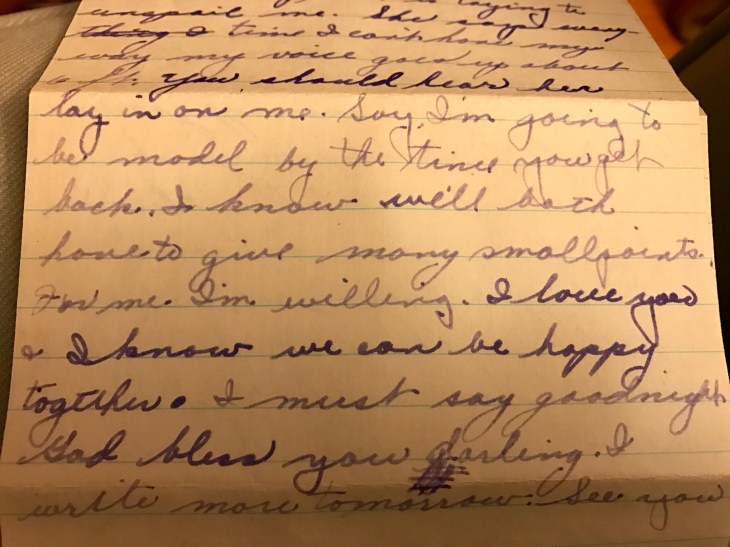 is trying to
unspoil me. She says every-
thing I time I can't have my
way my voice goes up about
You should hear her
lay in on me. Say, I'm going to
be model by the time you get
back. I know we'll both
have to give many small points.
For me. I'm willing. I love you
& I know we can be happy
together. I must say goodnight
God bless you darling. I
write more tomorrow. See you